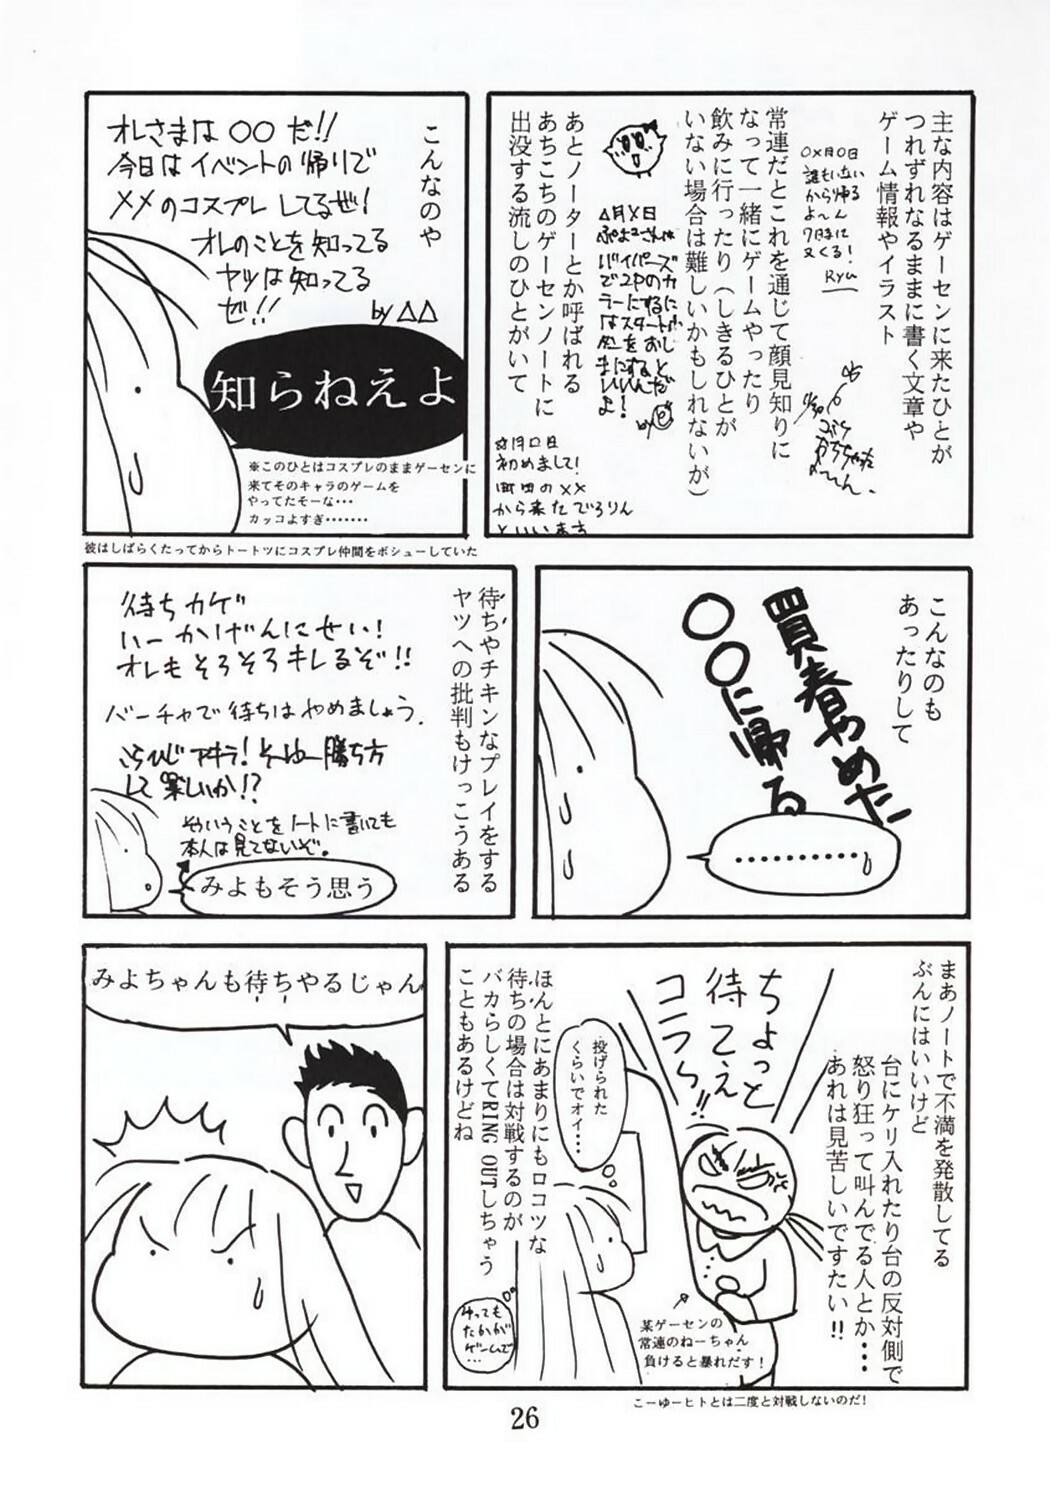 主な内容はゲーセンに来たひとが
つれずれなるままに書く文章や
ゲーム情報やイラスト
○×月○日
誰もいない
から帰る
よ〜ん
7時に
又くる!
Ryu
常連だとこれを通じて顔見知りに
なって一緒にゲームやったり
飲みに行ったり(しきるひとが
いない場合は難しいかもしれないが)
△月×日
あとノーターとか呼ばれる
あちこちのゲーセンノートに
出没する流しのひとがいて
月□日
初めまして!
町田の××
から来たでろりん
といいます
こんなのや
オレさまは○○だ!!
今日はイベントの帰りで
××のコスプレしてるぜ!
オレのことを知ってる
ヤツは知ってる
ぜ!!
by △△
知らねえよ
※このひとはコスプレのままゲーセンに
来てそのキャラのゲームを
やってたそーな・・・
カッコよすぎ・・・・・・・
彼はしばらくたってからトートツにコスプレ仲間をボシューしていた
こんなのも
あったりして
買春やめた
○○に帰る
・・・・・・・・・・・
待ちやチキンなプレイをする
ヤツへの批判もけっこうある
待ちカゲ
いーかげんにせい!
オレもそろそろキレるぞ!!
バーチャで待ちはやめましょう.
こらひじアキラ!そーゆー勝ち方
して楽しいか!?
そういうことをノートに書いても
本人は見てないぞ。
みよもそう思う
まあノートで不満を発散してる
ぶんにはいいけど
台にケリ入れたり台の反対側で
怒り狂って叫んでる人とか・・・
あれは見苦しいですたい!!
ちょっと
待てえ
コラら!!
投げられた
くらいでオイ・・・
某ゲーセンの
常連のねーちゃん
負けると暴れだす!
ほんとにあまりにもロコツな
待ちの場合は対戦するのが
バカらしくてRING OUTしちゃう
こともあるけどね
ゆっても
たかが
ゲームで
・・・
こーゆーヒトとは二度と対戦しないのだ!
みよちゃんも待ちやるじゃん
26